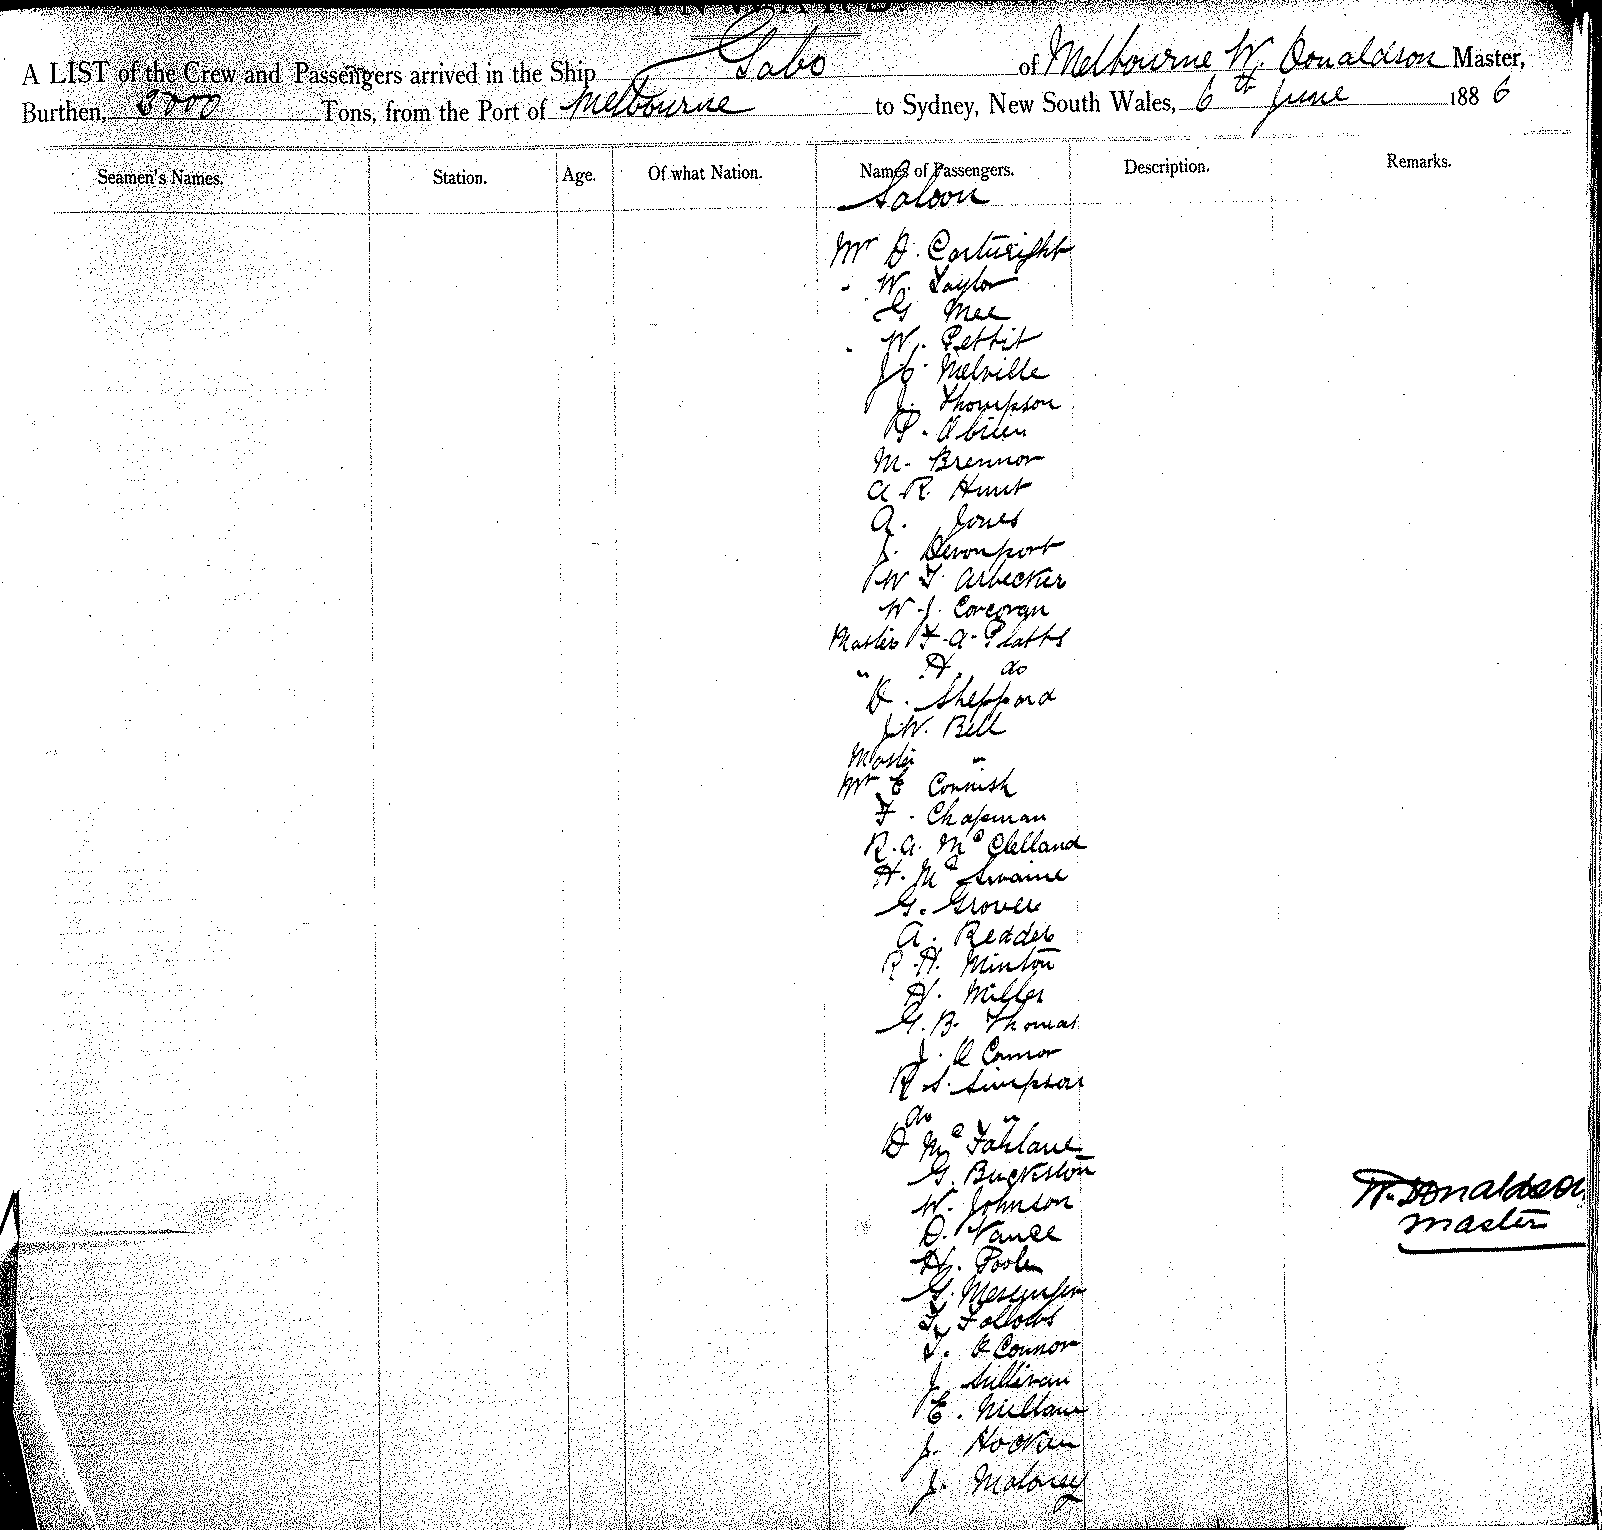 A LIST of the Crew and Passengers arrived in the Ship Gabo of Melbourne W. Donaldson Master,
Burthen, 3000 Tons, from the Port of Melbourne to Sydney, New South Wales, 6th June 1886
Seamen's Names. Station. Age. Of what Nation. Names of Passengers. Description. Remarks.
Saloon
Mr D. Cartwright
" W. Taylor
G Mee
" W. Pettit
J C Melville
J. Thompson
P. Obrien
M. Brennor
A R. Hunt
A. Jones
J. Devonport
W T Arbecker
W. J. Corcoran
Master F. A. Platts
" H. do
D. Sheppard
J. W. Bell
Master "
Mr E Cornish
F. Chapman
R. A. McClelland
H. McSwaine
G. Grover
A. Redder
R. H. Minton
H. Miller
G. B. Thomas
J. O Connor
R S. Simpson
do "
D McFarlane
G. Buckston
W. Johnson
D. Vance
H. Poole
G. Messenger
T. Follows
T. O Connor
J. Sullivan
E. Millane
J. Hocken
J. Moloney
W. Donaldson
Master